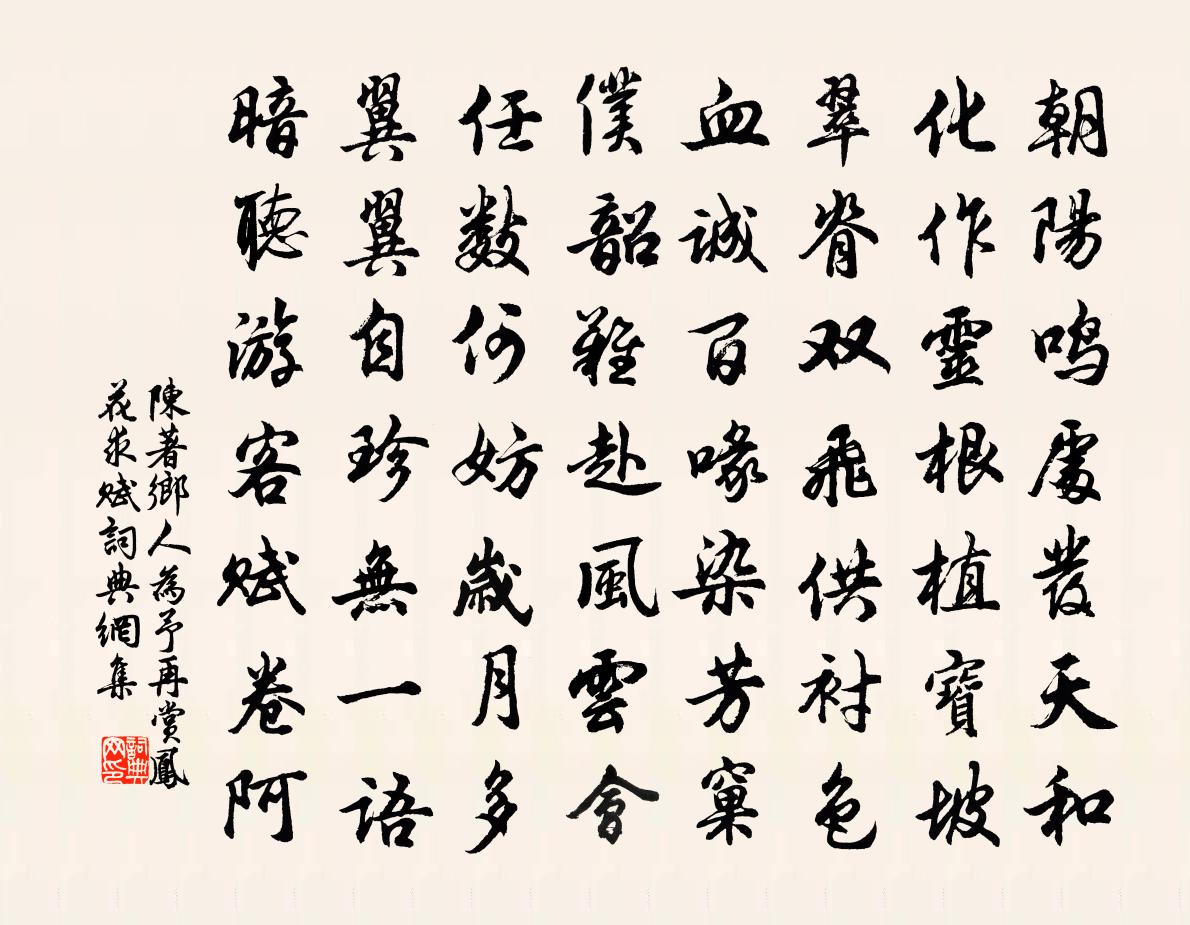 朝陽鳴處發天和
化作靈根植寶坡
翠脊双飛供襯色
血誠百喙染芳窠
僕韶難赴風雲會
任數何妨歲月多
翼翼自珍無一語
暗聽游客賦卷阿
陳著鄉人為予再賞鳳
花求賦詞典網集
詞典
网印